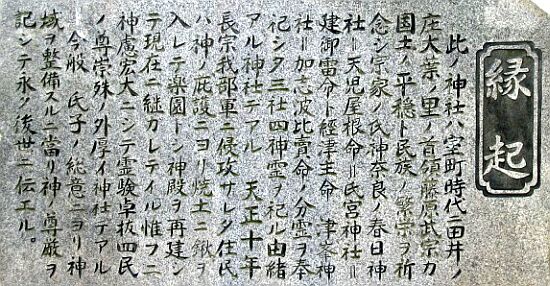 縁起
此ノ神社ハ室町時代二田井ノ
庄大葉ノ里ノ首領藤原武宗ガ
国土ノ平穏ト民族ノ繁宗ヲ祈
念シ宗家ノ氏神奈良ノ春日神
社＝天児屋根命＝氏宮神社＝
建御雷命ト経津主命 津峯神
社＝加志波比賣命ノ分霊ヲ奉
祀シタ三社四神霊ヲ祀ル由緒
アル神社デアル 天正十年
長宗我部軍ニ侵攻サレタ住民
ハ神ノ庇護ニヨリ焼土ニ鍬ヲ
入レテ楽園トシ神殿ヲ再建シ
テ現在ニ継ガレテイル惟フニ
神慮宏大ニシテ霊験卓抜四民
ノ尊崇殊ノ外厚イ神社デアル
今般 氏子ノ総意ニヨリ神
域ヲ整備スルニ當リ神ノ尊厳ヲ
記シテ永ク後世ニ伝エル。